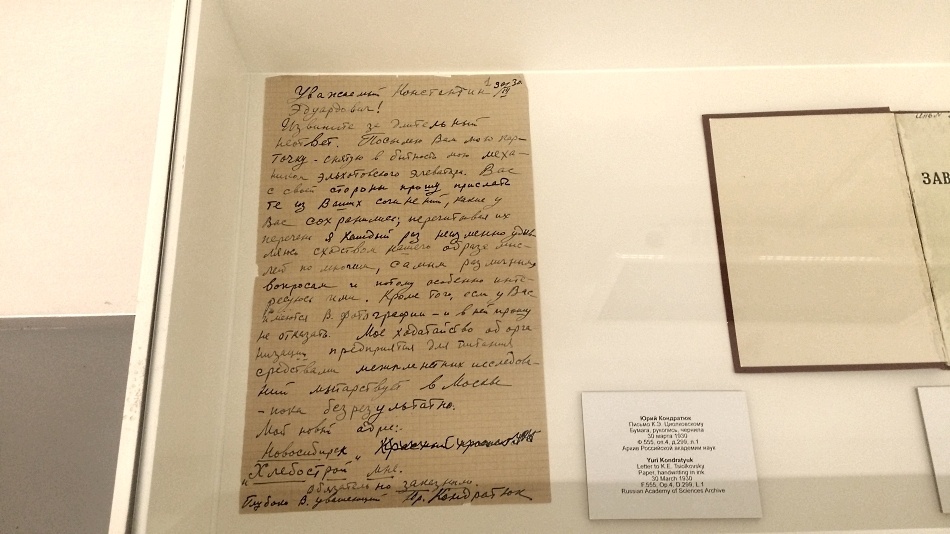 Уважаемый Константин
Эдуардович!
Извините за длительный
неответ. Посылаю Вам мою кар-
точку - снятую в бытность мою меха-
ником Эльхотовского элеватора. Вас
с своей стороны прошу прислать
те из Ваших сочинений, какие у
Вас сохранились; перечитывая их
перечень я каждый раз неизменно удив
ляюсь сходством нашего образа мыс-
лей по многим, самым различным
вопросам и потому особенно инте-
ресуюсь ими. Кроме того, если у Вас
имеются В. фотографии - и в ней прошу
не отказать. Мое ходатайство об орга-
низации предприятия для питания
средствами межпланетных исследова-
ний мытарствует в Москве
- пока безрезультатно.
Мой новый адрес:-
Новосибирск
"Хлебострой" мне.
Обязательно заказным.
Глубоко В. уважающий Юр. Кондратюк
ЗАВ
Юрий Кондратюк
Письмо К.Э. Циолковскому
Бумага, рукопись, чернила
30 марта 1930
Ф.555, оп.4, д.299, л.1
Архив Российской академии наук
Yuri Kondratyuk
Letter to K.E. Tsiolkovsky
Paper, handwriting in ink
30 March 1930
F.555, Op.4, D.299, L.1
Russian Academy of Sciences Archive